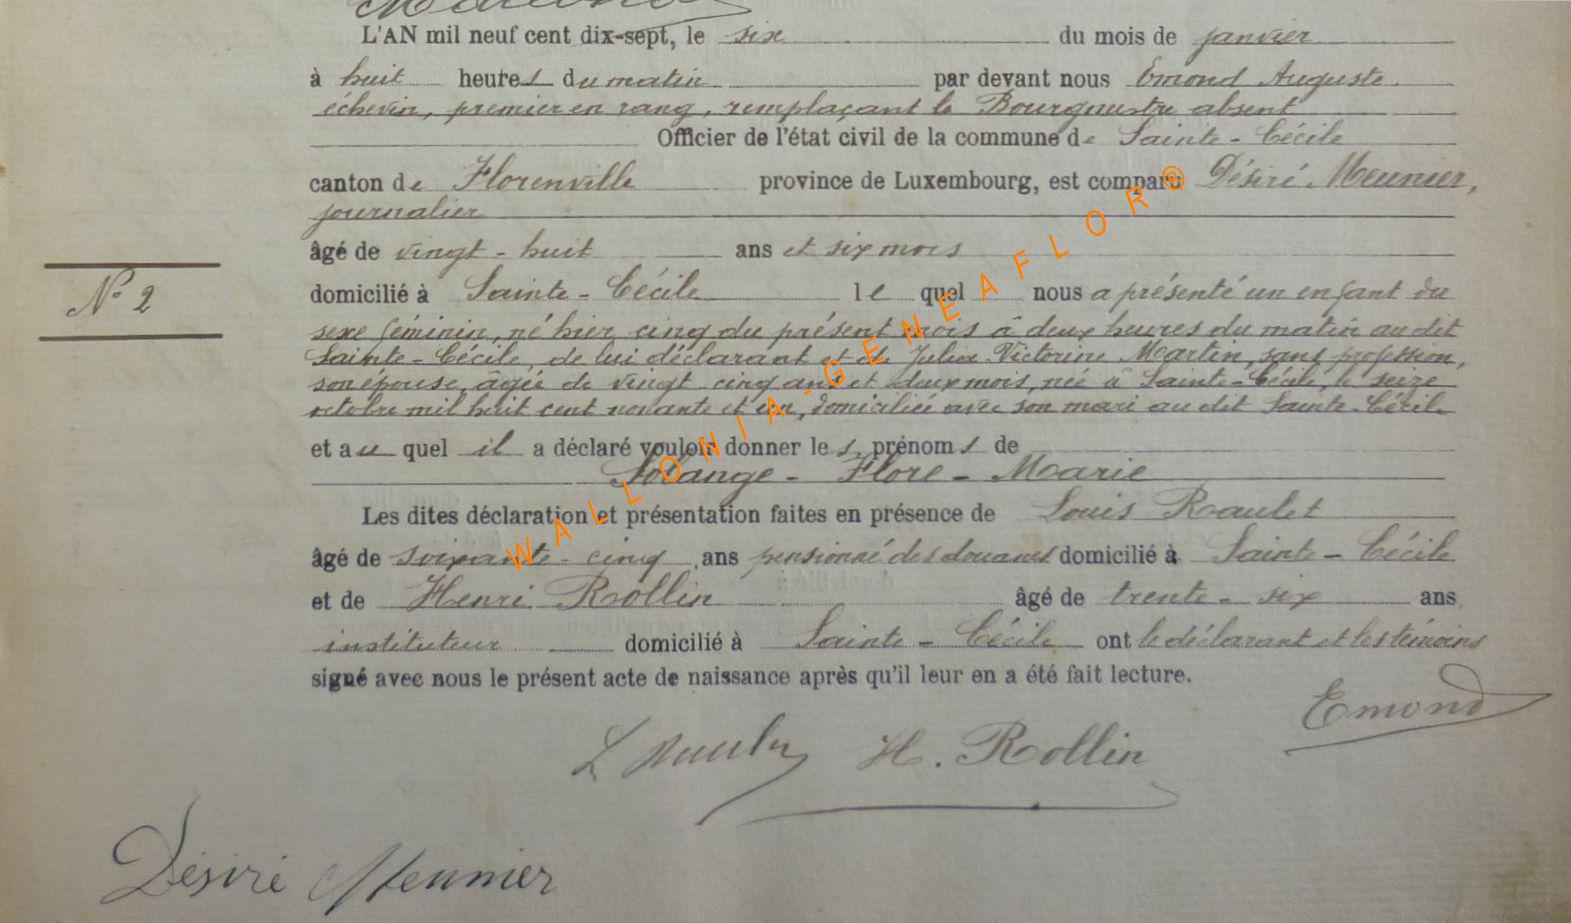 L'AN mil neuf cent dix-sept, le six du mois de janvier
à huit heures du matin par devant nous Emond Auguste
échevin, premier en rang, remplaçant le Bourgmestre absent
Officier de l'état civil de la commune de Sainte-Cécile
canton de Florenville province de Luxembourg, est comparu Désiré Meunier,
journalier
âgé de vingt-huit ans et six mois
domicilié à Sainte-Cécile lequel nous a présenté un enfant du
N° 2
sexe féminin, né hier cinq du présent mois à deux heures du matin au dit
Sainte-Cécile, de lui déclarant et de Julia Victorine Martin, sans profession,
son épouse, âgée de vingt-cinq ans et deux mois, née à Sainte-Cécile, le seize
octobre mil huit cent nonante et un, domiciliée avec son mari au dit Sainte-Cécile
et au quel il a déclaré vouloir donner les prénoms de
Solange - Flore - Marie
Les dites déclaration et présentation faites en présence de Louis Raulet
âgé de soixante-cinq ans pensionné des douanes domicilié à Sainte-Cécile
et de Henri Rollin âgé de trente-six ans
instituteur domicilié à Sainte-Cécile ont le déclarant et les témoins
signé avec nous le présent acte de naissance après qu'il leur en a été fait lecture.
Emond
L Raulet H. Rollin
Désiré Meunier
WALLONIA-GENEAFLOR®